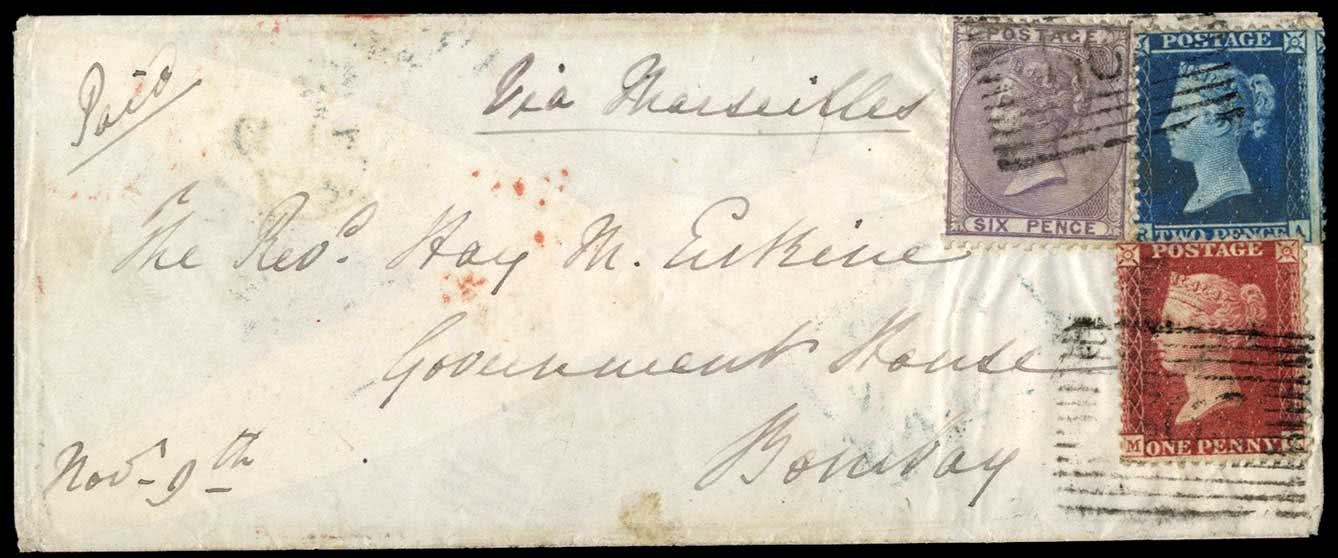 Paid
Via Marseilles
The Revd. Hay M. Erskine
Government House
Bombay
Novr 9th
POSTAGE
SIX PENCE
POSTAGE
TWO PENCE A
POSTAGE
M ONE PENNY